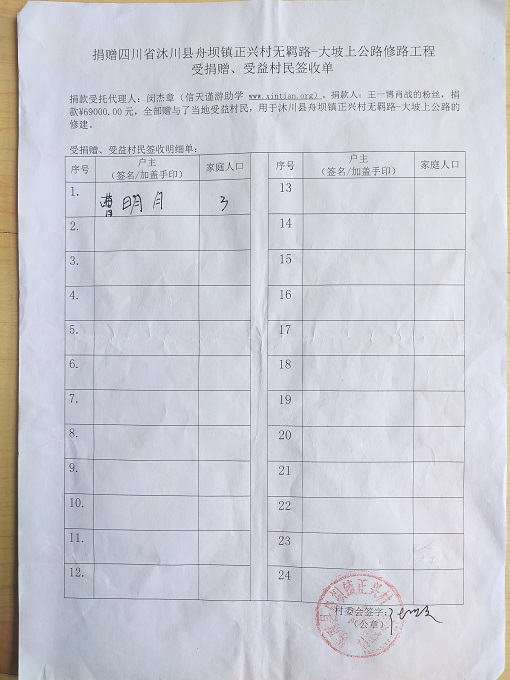 捐赠四川省沐川县舟坝镇正兴村无羁路-大坡上公路修路工程
受捐赠、受益村民签收单
捐款受托代理人：闵杰章（信天谨游助学 www.xintian.org）、捐款人：王一博肖战的粉丝，捐
款¥69000.00元，全部赠与了当地受益村民，用于沐川县舟坝镇正兴村无羁路-大坡上公路的
修建。
受捐赠、受益村民签收明细单：
序号 户主（签名/加盖手印） 家庭人口 序号 户主（签名/加盖手印） 家庭人口
1. 曹明月 3 13
2. 14
3. 15
4. 16
5. 17
6. 18
7. 19
8. 20
9. 21
10. 22
11. 23
12. 24
村委会签字：
（公章）
舟坝镇正兴村